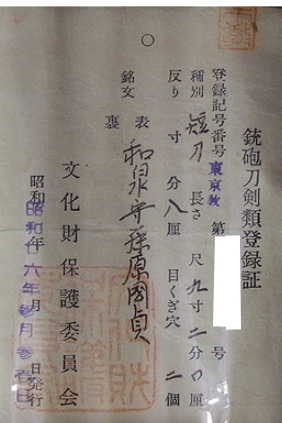 銃砲刀剣類登録証
登録記号番号 東京教 第 号
種別 短刀 長さ 尺 九寸 二分 〇厘
反り 寸 分 八厘 目くぎ穴 二個
銘文 表 和泉守藤原国貞
裏
文化財保護委員会
昭和廿六年 月 日発行